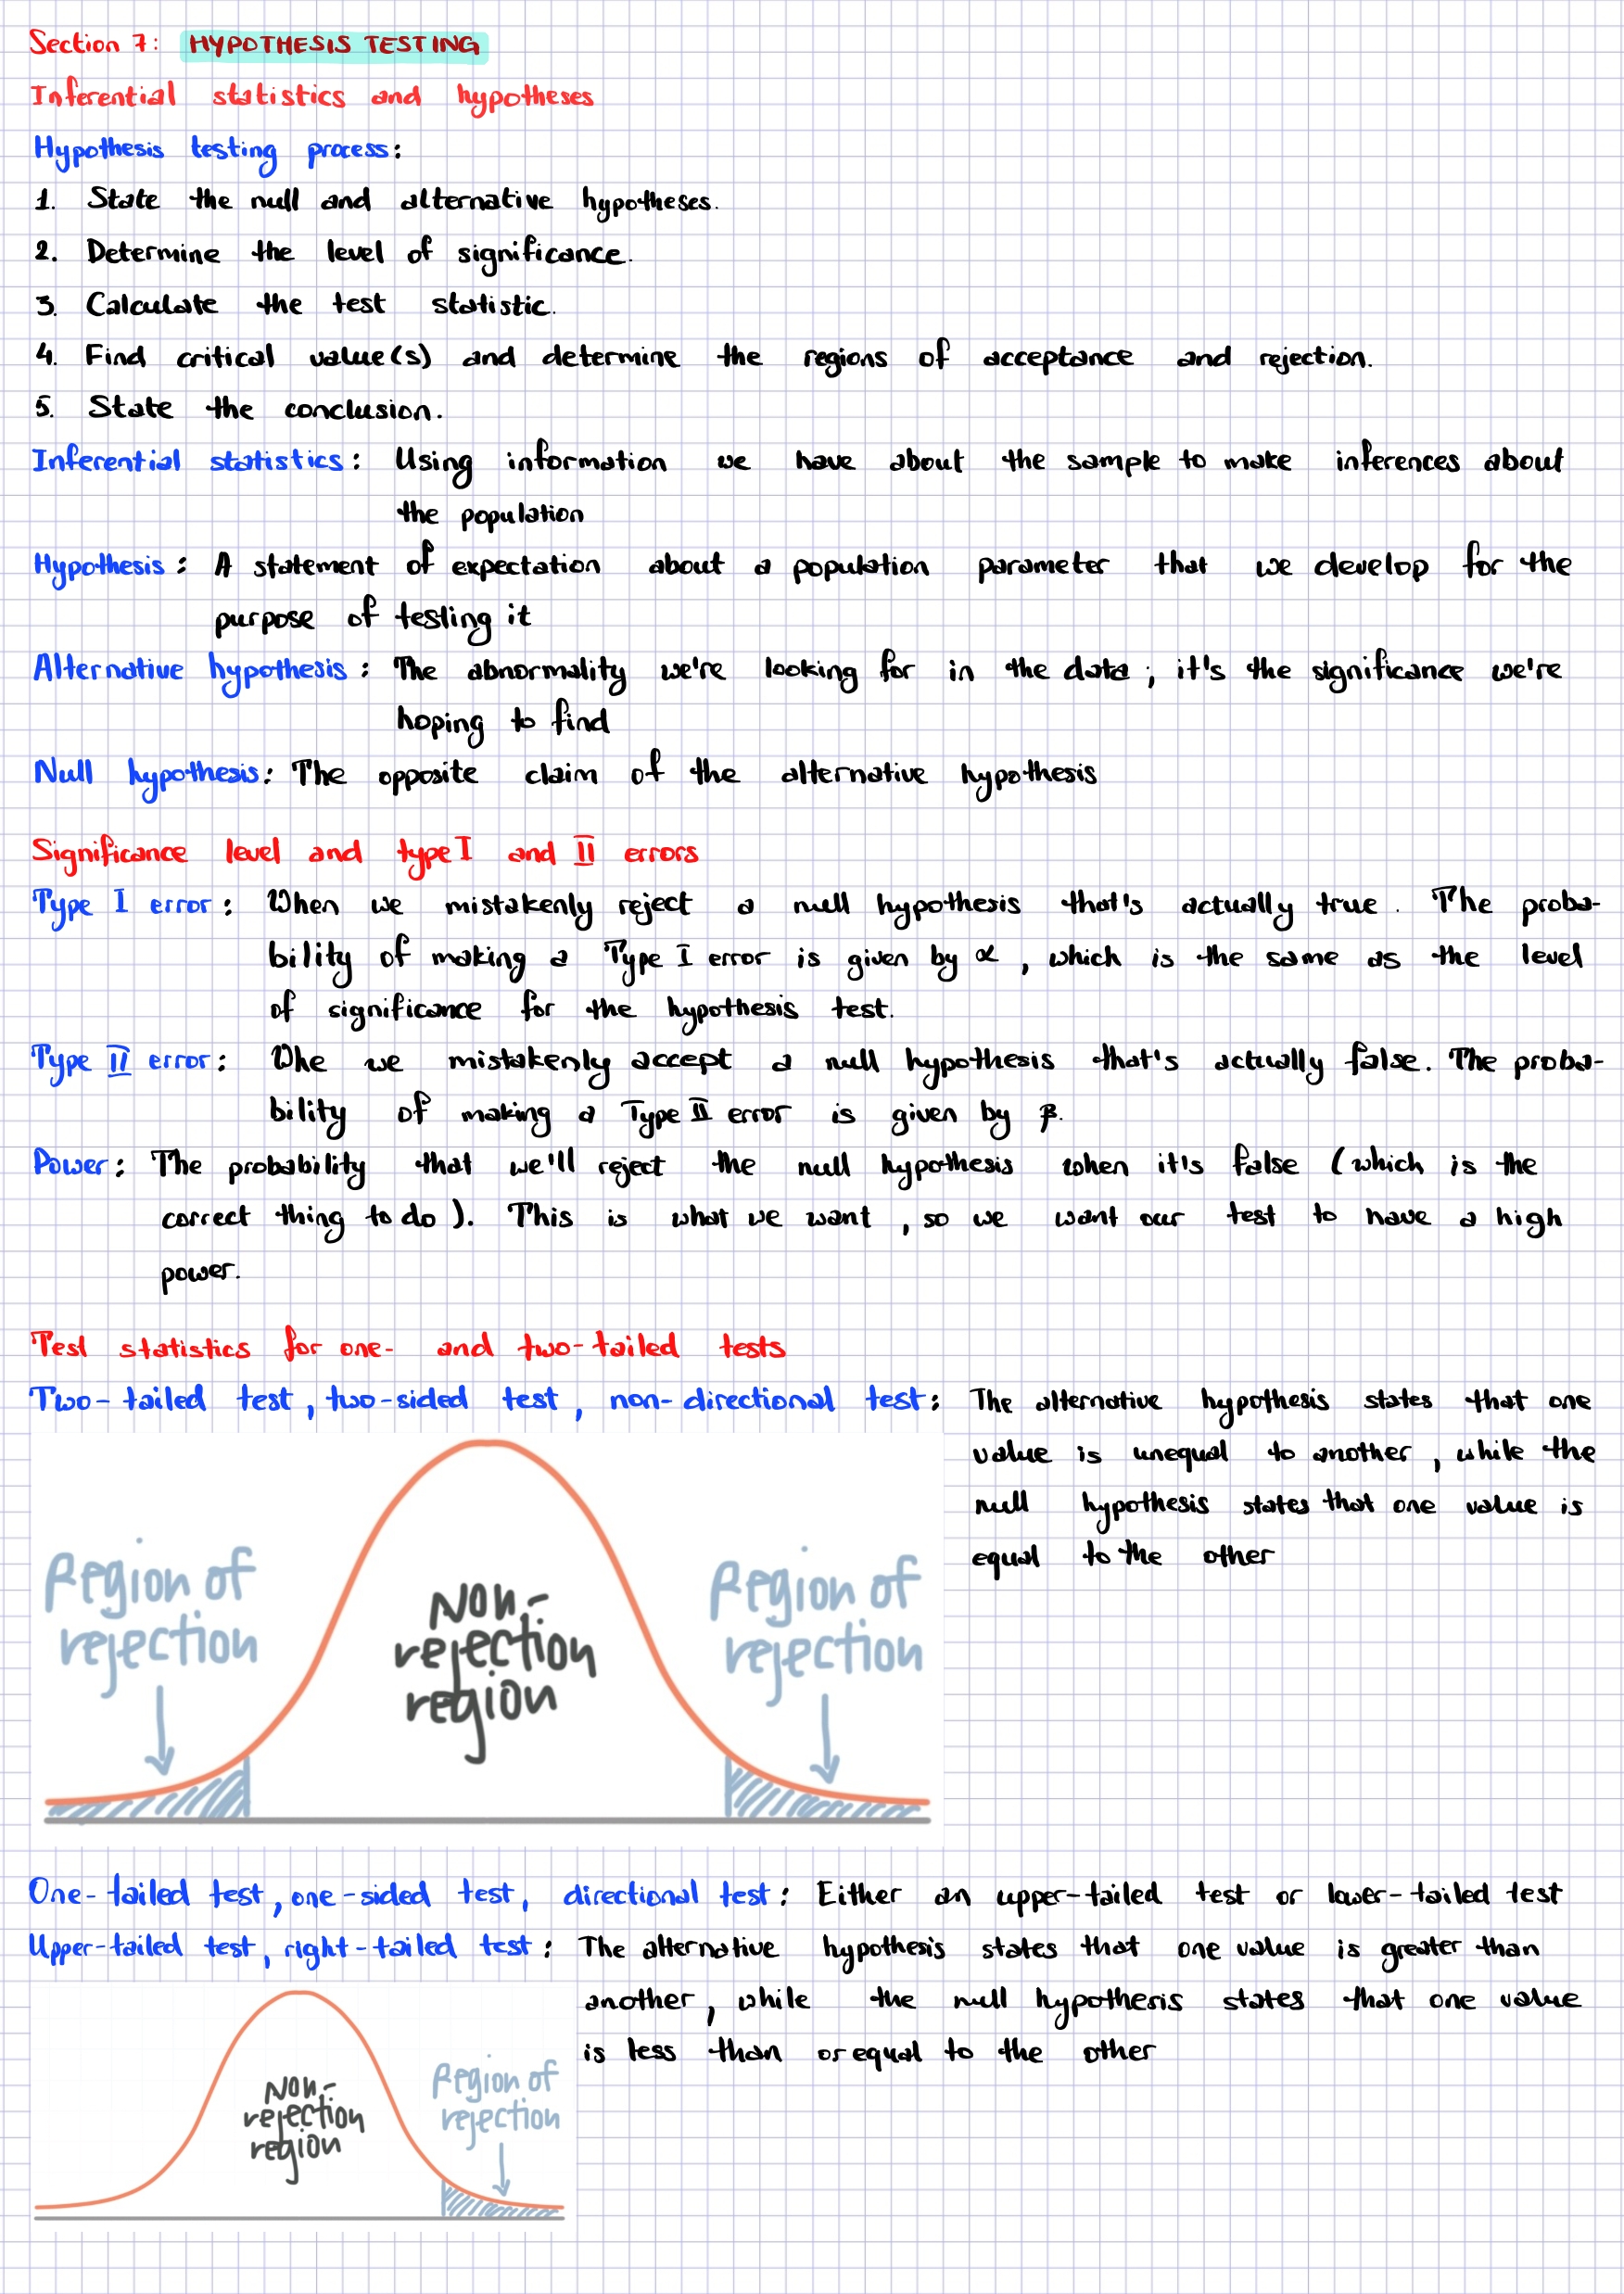 Section 7: HYPOTHESIS TESTING
Inferential statistics and hypotheses
Hypothesis testing process:
1. State the null and alternative hypotheses.
2. Determine the level of significance.
3. Calculate the test statistic.
4. Find critical value(s) and determine the regions of acceptance and rejection.
5. State the conclusion.
Inferential statistics: Using information we have about the sample to make inferences about
the population
Hypothesis: A statement of expectation about a population parameter that we develop for the
purpose of testing it
Alternative hypothesis: The abnormality we're looking for in the data; it's the significance we're
hoping to find
Null hypothesis: The opposite claim of the alternative hypothesis
Significance level and type I and II errors
Type I error: When we mistakenly reject a null hypothesis that's actually true. The proba-
bility of making a Type I error is given by α, which is the same as the level
of significance for the hypothesis test.
Type II error: Whe we mistakenly accept a null hypothesis that's actually false. The proba-
bility of making a Type II error is given by β.
Power: The probability that we'll reject the null hypothesis when it's false (which is the
correct thing to do). This is what we want, so we want our test to have a high
power.
Test statistics for one- and two-tailed tests
Two-tailed test, two-sided test, non-directional test: The alternative hypothesis states that one
value is unequal to another, while the
null hypothesis states that one value is
equal to the other
Region of
rejection
Non-
rejection
region
Region of
rejection
One-tailed test, one-sided test, directional test: Either an upper-tailed test or lower-tailed test
Upper-tailed test, right-tailed test: The alternative hypothesis states that one value is greater than
another, while the null hypothesis states that one value
is less than or equal to the other
Non-
rejection
region
Region of
rejection